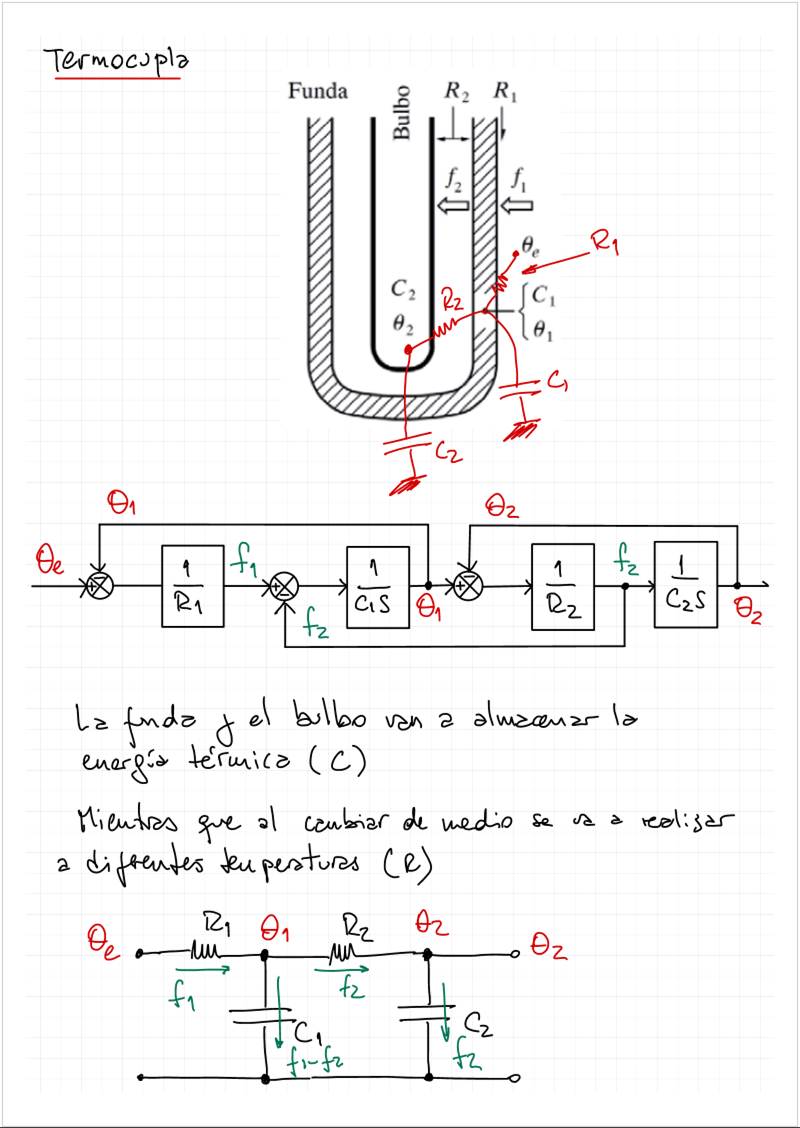 Termocupla
Funda
Bulbo
R₂
R₁
f₂
f₁
θe
R₁
C₂
θ₂
R₂
C₁
θ₁
C₁
C₂
θ₁
θ₂
θe
1/R₁
f₁
f₂
1/C₁S
θ₁
1/R₂
f₂
1/C₂S
θ₂
La funda y el bulbo van a almacenar la
energía térmica (C)
Mientras que al cambiar de medio se va a realizar
a diferentes temperaturas (R)
θe
R₁
θ₁
R₂
θ₂
θ₂
f₁
f₂
C₁
f₁-f₂
C₂
f₂